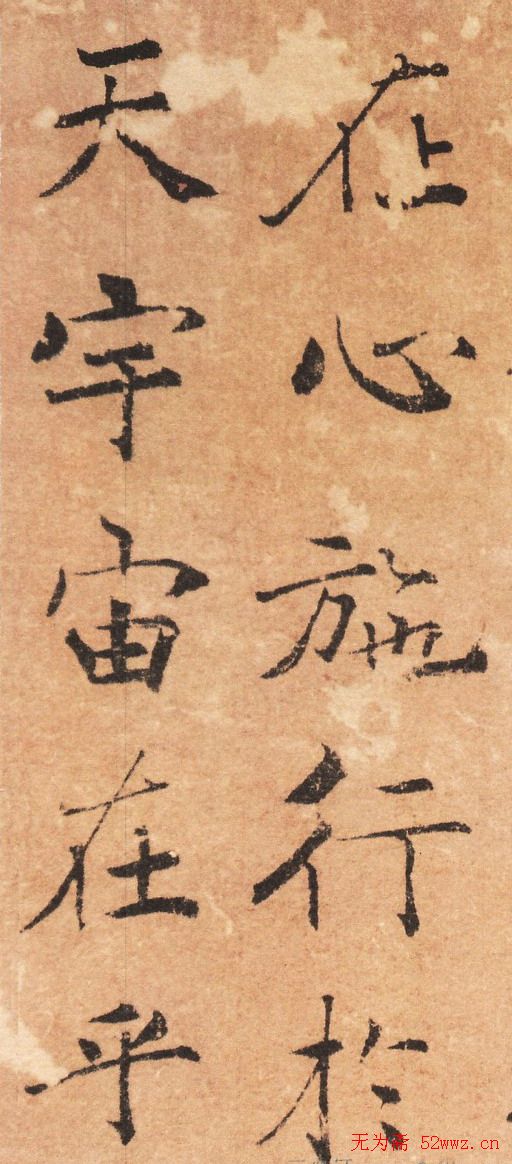 在心施行於
天宇宙在乎
无为斋 52wwz.cn